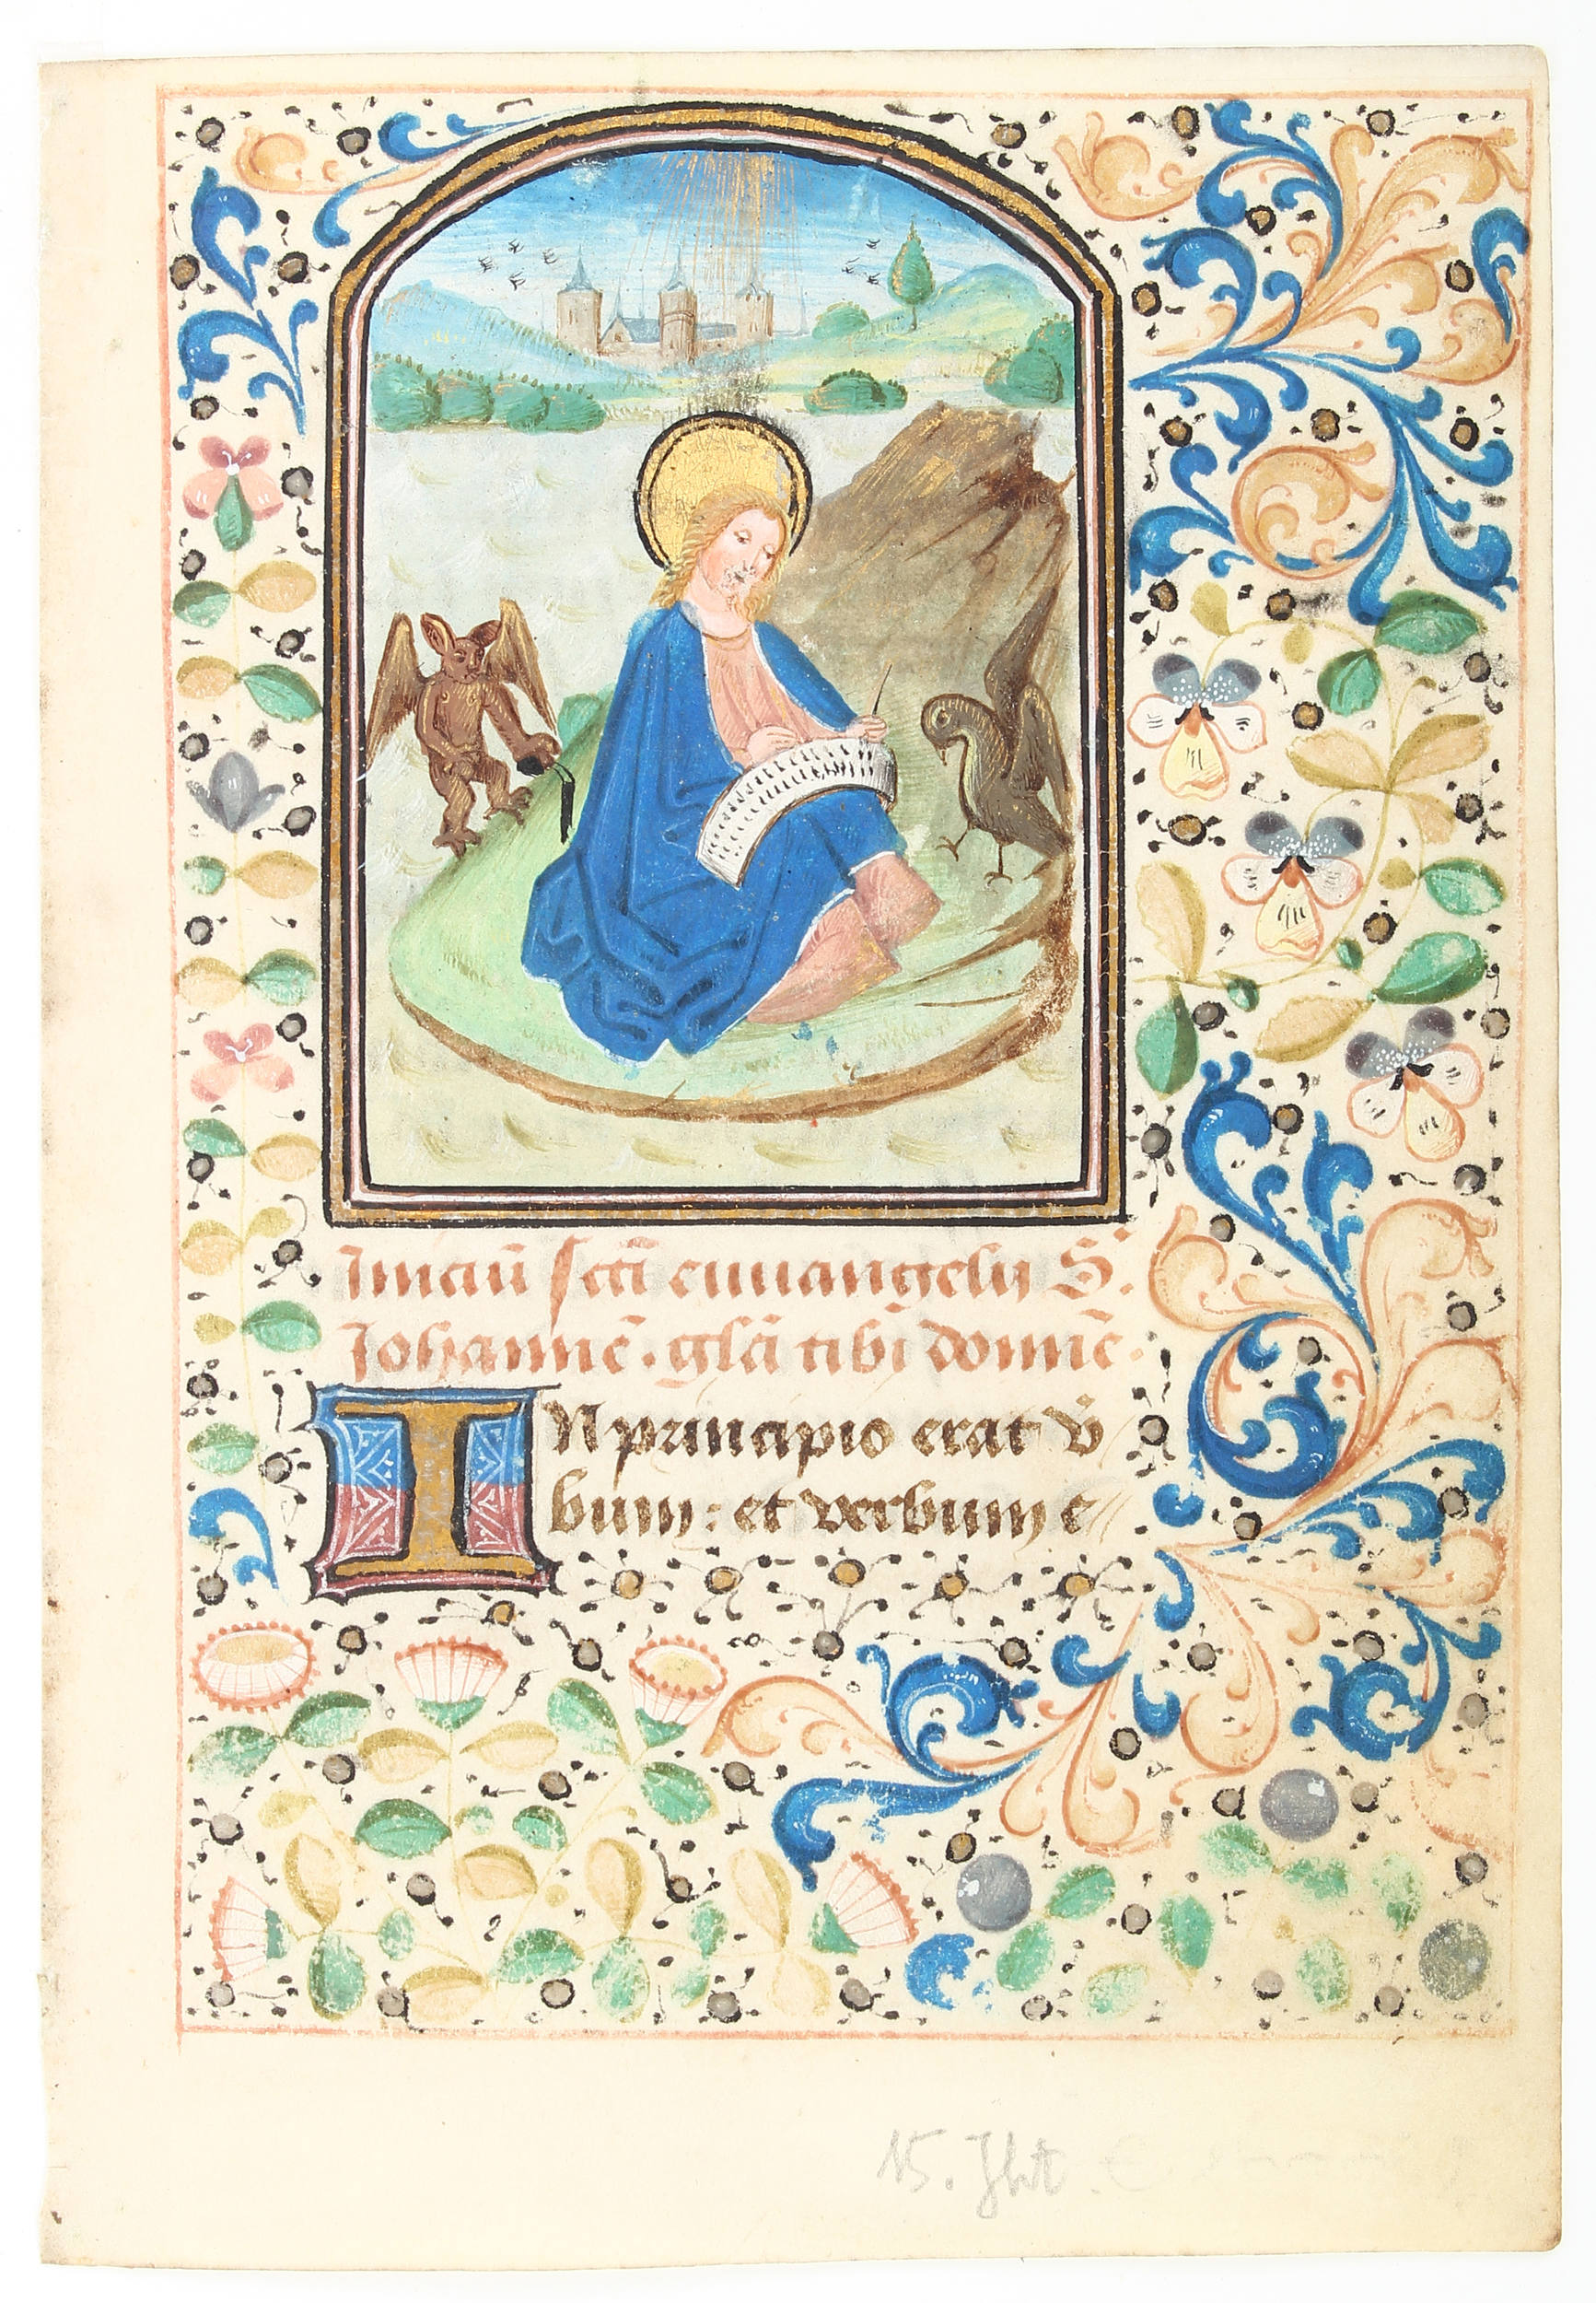 Iniciū sctī euuangelii S.
Iohannē. glā tibi domīe.
IN principio erat v̄
bum: et verbum e
15. Jht.